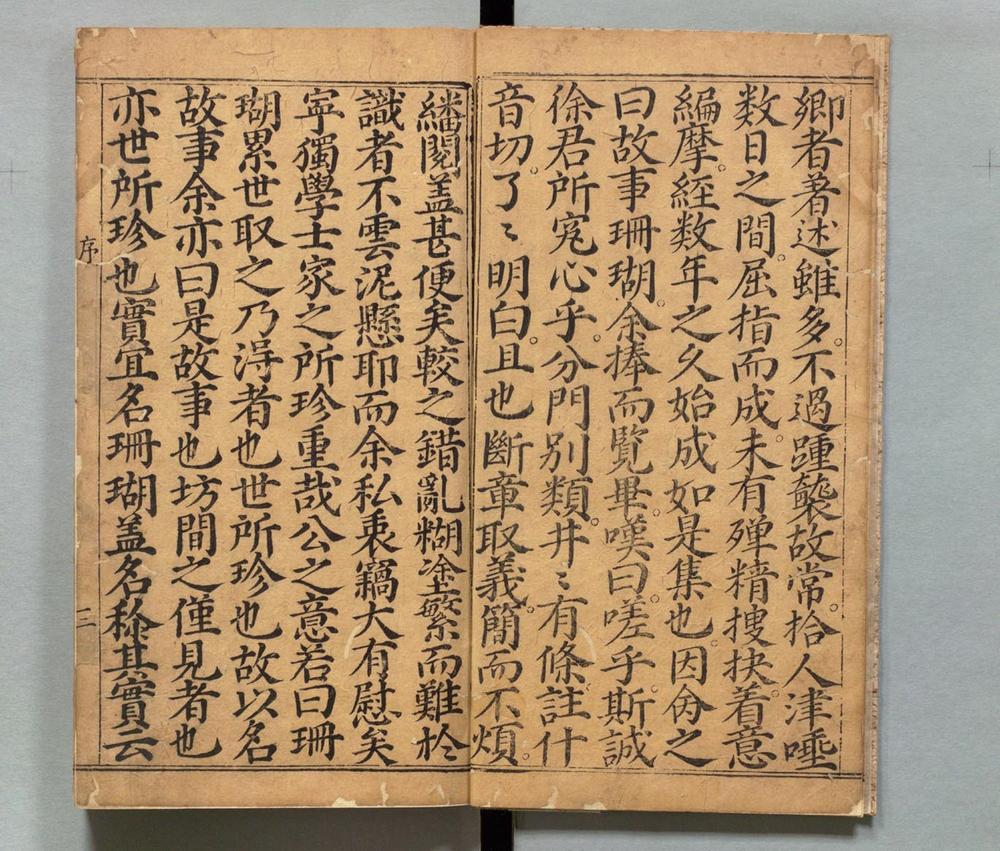 卿者著述雖多。不過踵襲故常。拾人津唾
数日之間。屈指而成。未有殫精搜抉。着意
編摩。經数年之久始成如是集也。因命之
曰故事珊瑚。余捧而覧畢。嘆曰。嗟乎斯誠
徐君所究心乎。分門別類。井〻有條。註什
音切。了〻明白。且也斷章取義。簡而不煩。
繙閱盖甚便矣較之錯亂糊塗繁而難於
識者不雲泥懸耶而余私衷竊大有慰矣
寧獨學士家之所珍重哉公之意若曰珊
瑚累世取之乃淂者也世所珍也故以名
故事余亦曰是故事也坊間之僅見者也
亦世所珍也實宜名珊瑚盖名稱其實云
序
二